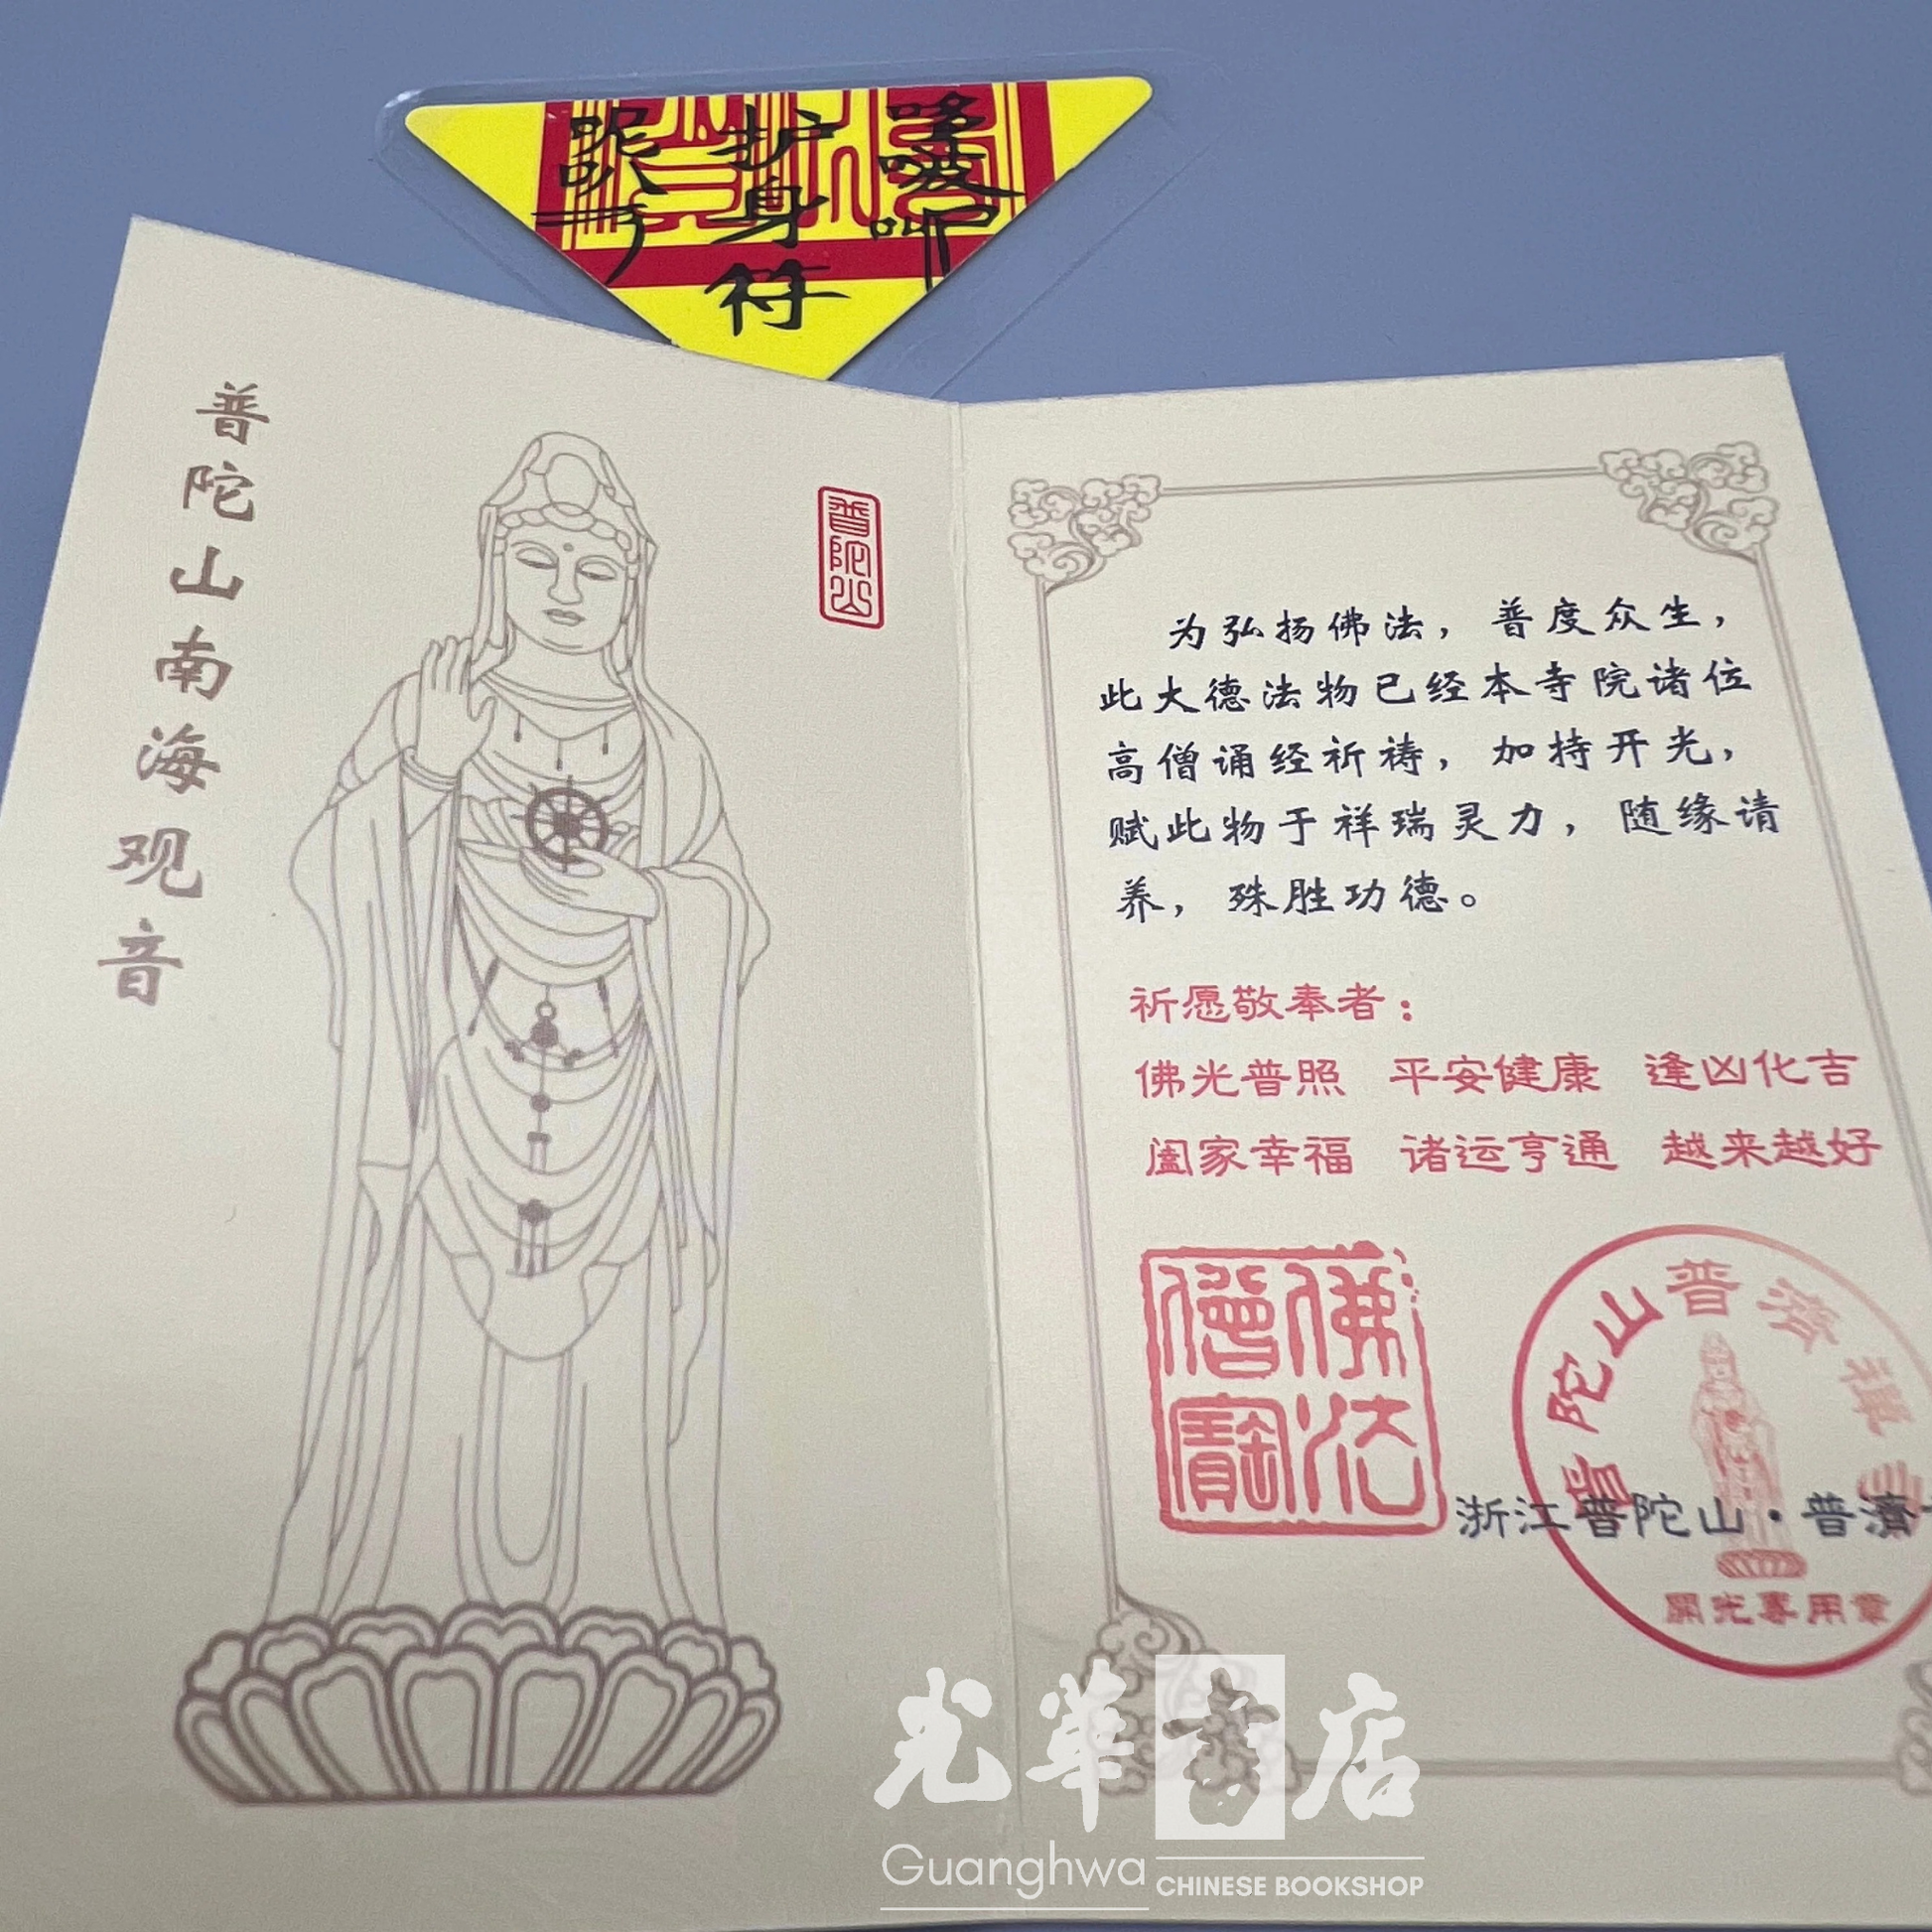 护身符
普陀山南海观音
普陀山
为弘扬佛法，普度众生，
此大德法物已经本寺院诸位
高僧诵经祈祷，加持开光，
赋此物于祥瑞灵力，随缘请
养，殊胜功德。
祈愿敬奉者：
佛光普照 平安健康 逢凶化吉
阖家幸福 诸运亨通 越来越好
佛法
僧寳
普陀山普济禅
浙江普陀山·普濟
開光專用章
光華書店
Guanghwa
CHINESE BOOKSHOP